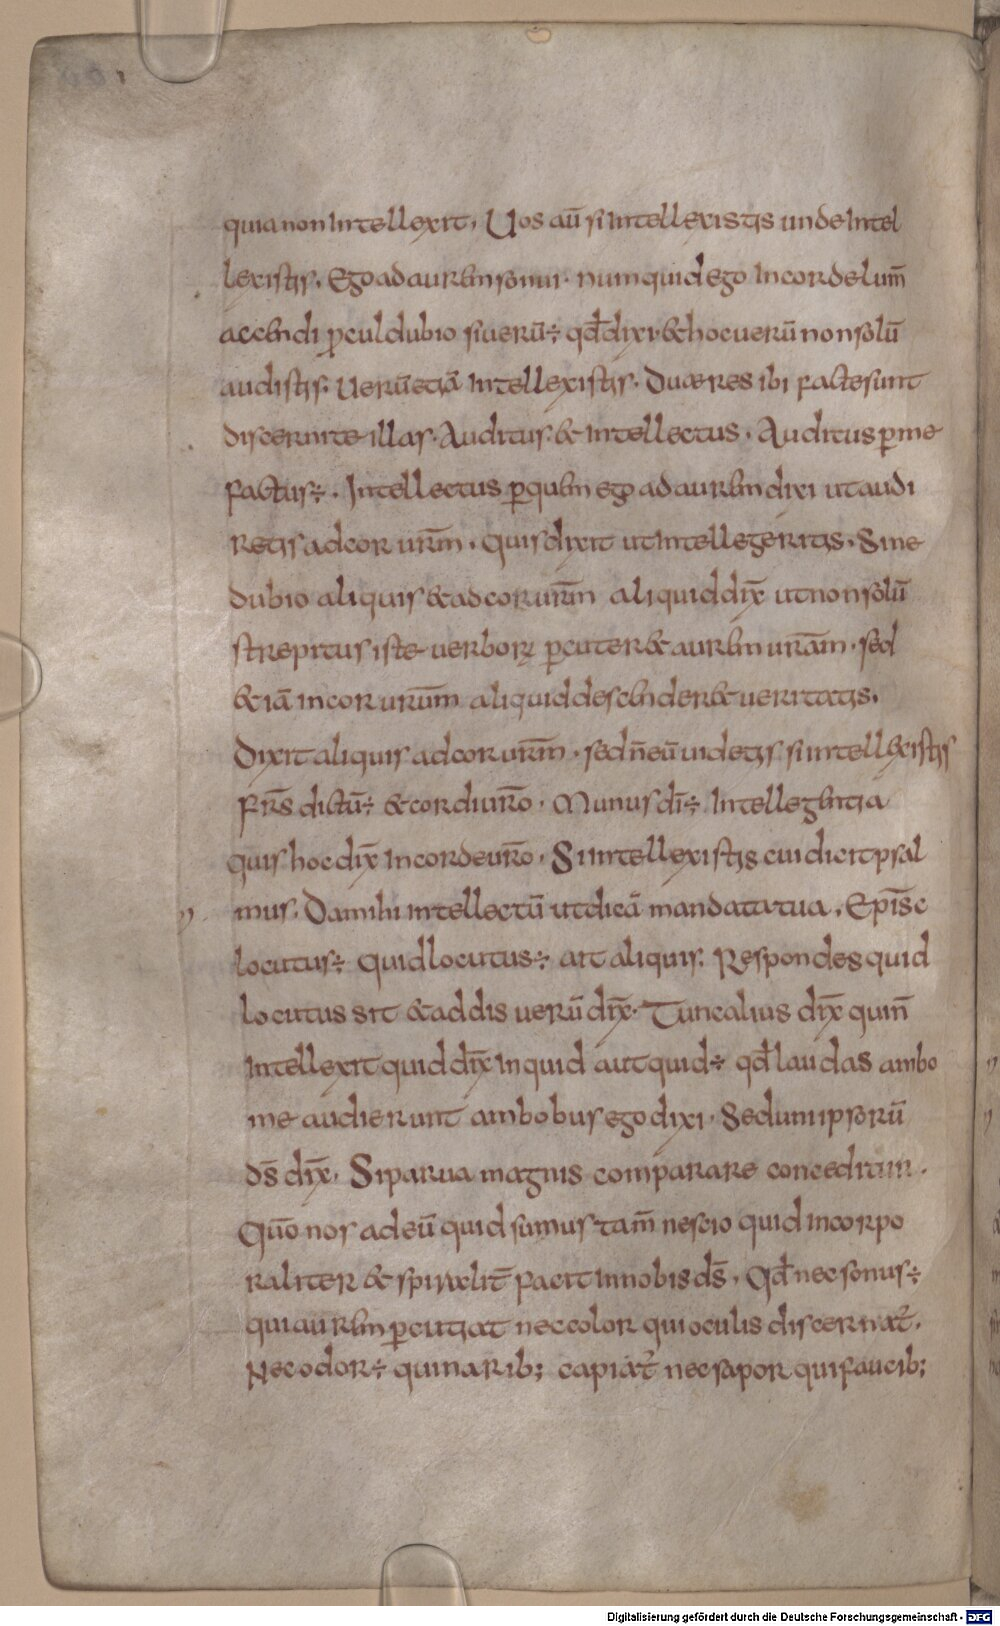 quia non intellexit, Uos aū si intellexistis unde intel
lexistis. Ego ad aurem sonui. numquid ego in corde lum̄
accendi ꝓculdubio si uerū÷ qđ dixi. & hoc uerū non solū
audistis. Uerū etiā intellexistis. Duæ res ibi factę sunt
discernite illas. Auditus. & intellectus. Auditus ꝑ me
factus÷. Intellectus ꝑ quem ego ad aurem dixi ut audi
retis ad cor ur̄m. quis dixit ut intellegeritis. Sine
dubio aliquis & ad cor ur̄m aliquid dix̄ ut non solū
strepitus iste uerboꝝ ꝑcuter& aurem ur̄am. sed
& iā in cor ur̄um aliquid descender& ueritatis.
Dixit aliquis ad cor ur̄m. sed n̄ eū uidetis si intellexistis
fr̄s dictū÷ & cordi ur̄o. Munus dī÷ intellegentia
quis hoc dix̄ in corde ur̄o. Si intellexistis cui dicit psal
mus. Da mihi intellectū ut dicā mandata tua. Epīsc
locutus÷ quid locutus÷ ait aliquis. Respondes quid
locutus sit & addis uerū dix̄. Tunc alius dix̄ qui n̄
intellexit quid dix̄ inquid aut quid÷ qđ laudas ambo
me audierunt ambobus ego dixi. Sed uni ipsorū
d̄s dix̄. Si parua magnis comparare conceditur.
Quō nos ad eū quid sumus tam̄ nescio quid incorpo
raliter & spiritalit̄ facit in nobis d̄s. Qđ nec sonus÷
qui aurem ꝑcutiat nec color qui oculis discernat̄.
Nec odor÷ qui narib; capiat̄ nec sapor qui faucib;
Digitalisierung gefördert durch die Deutsche Forschungsgemeinschaft - DFG